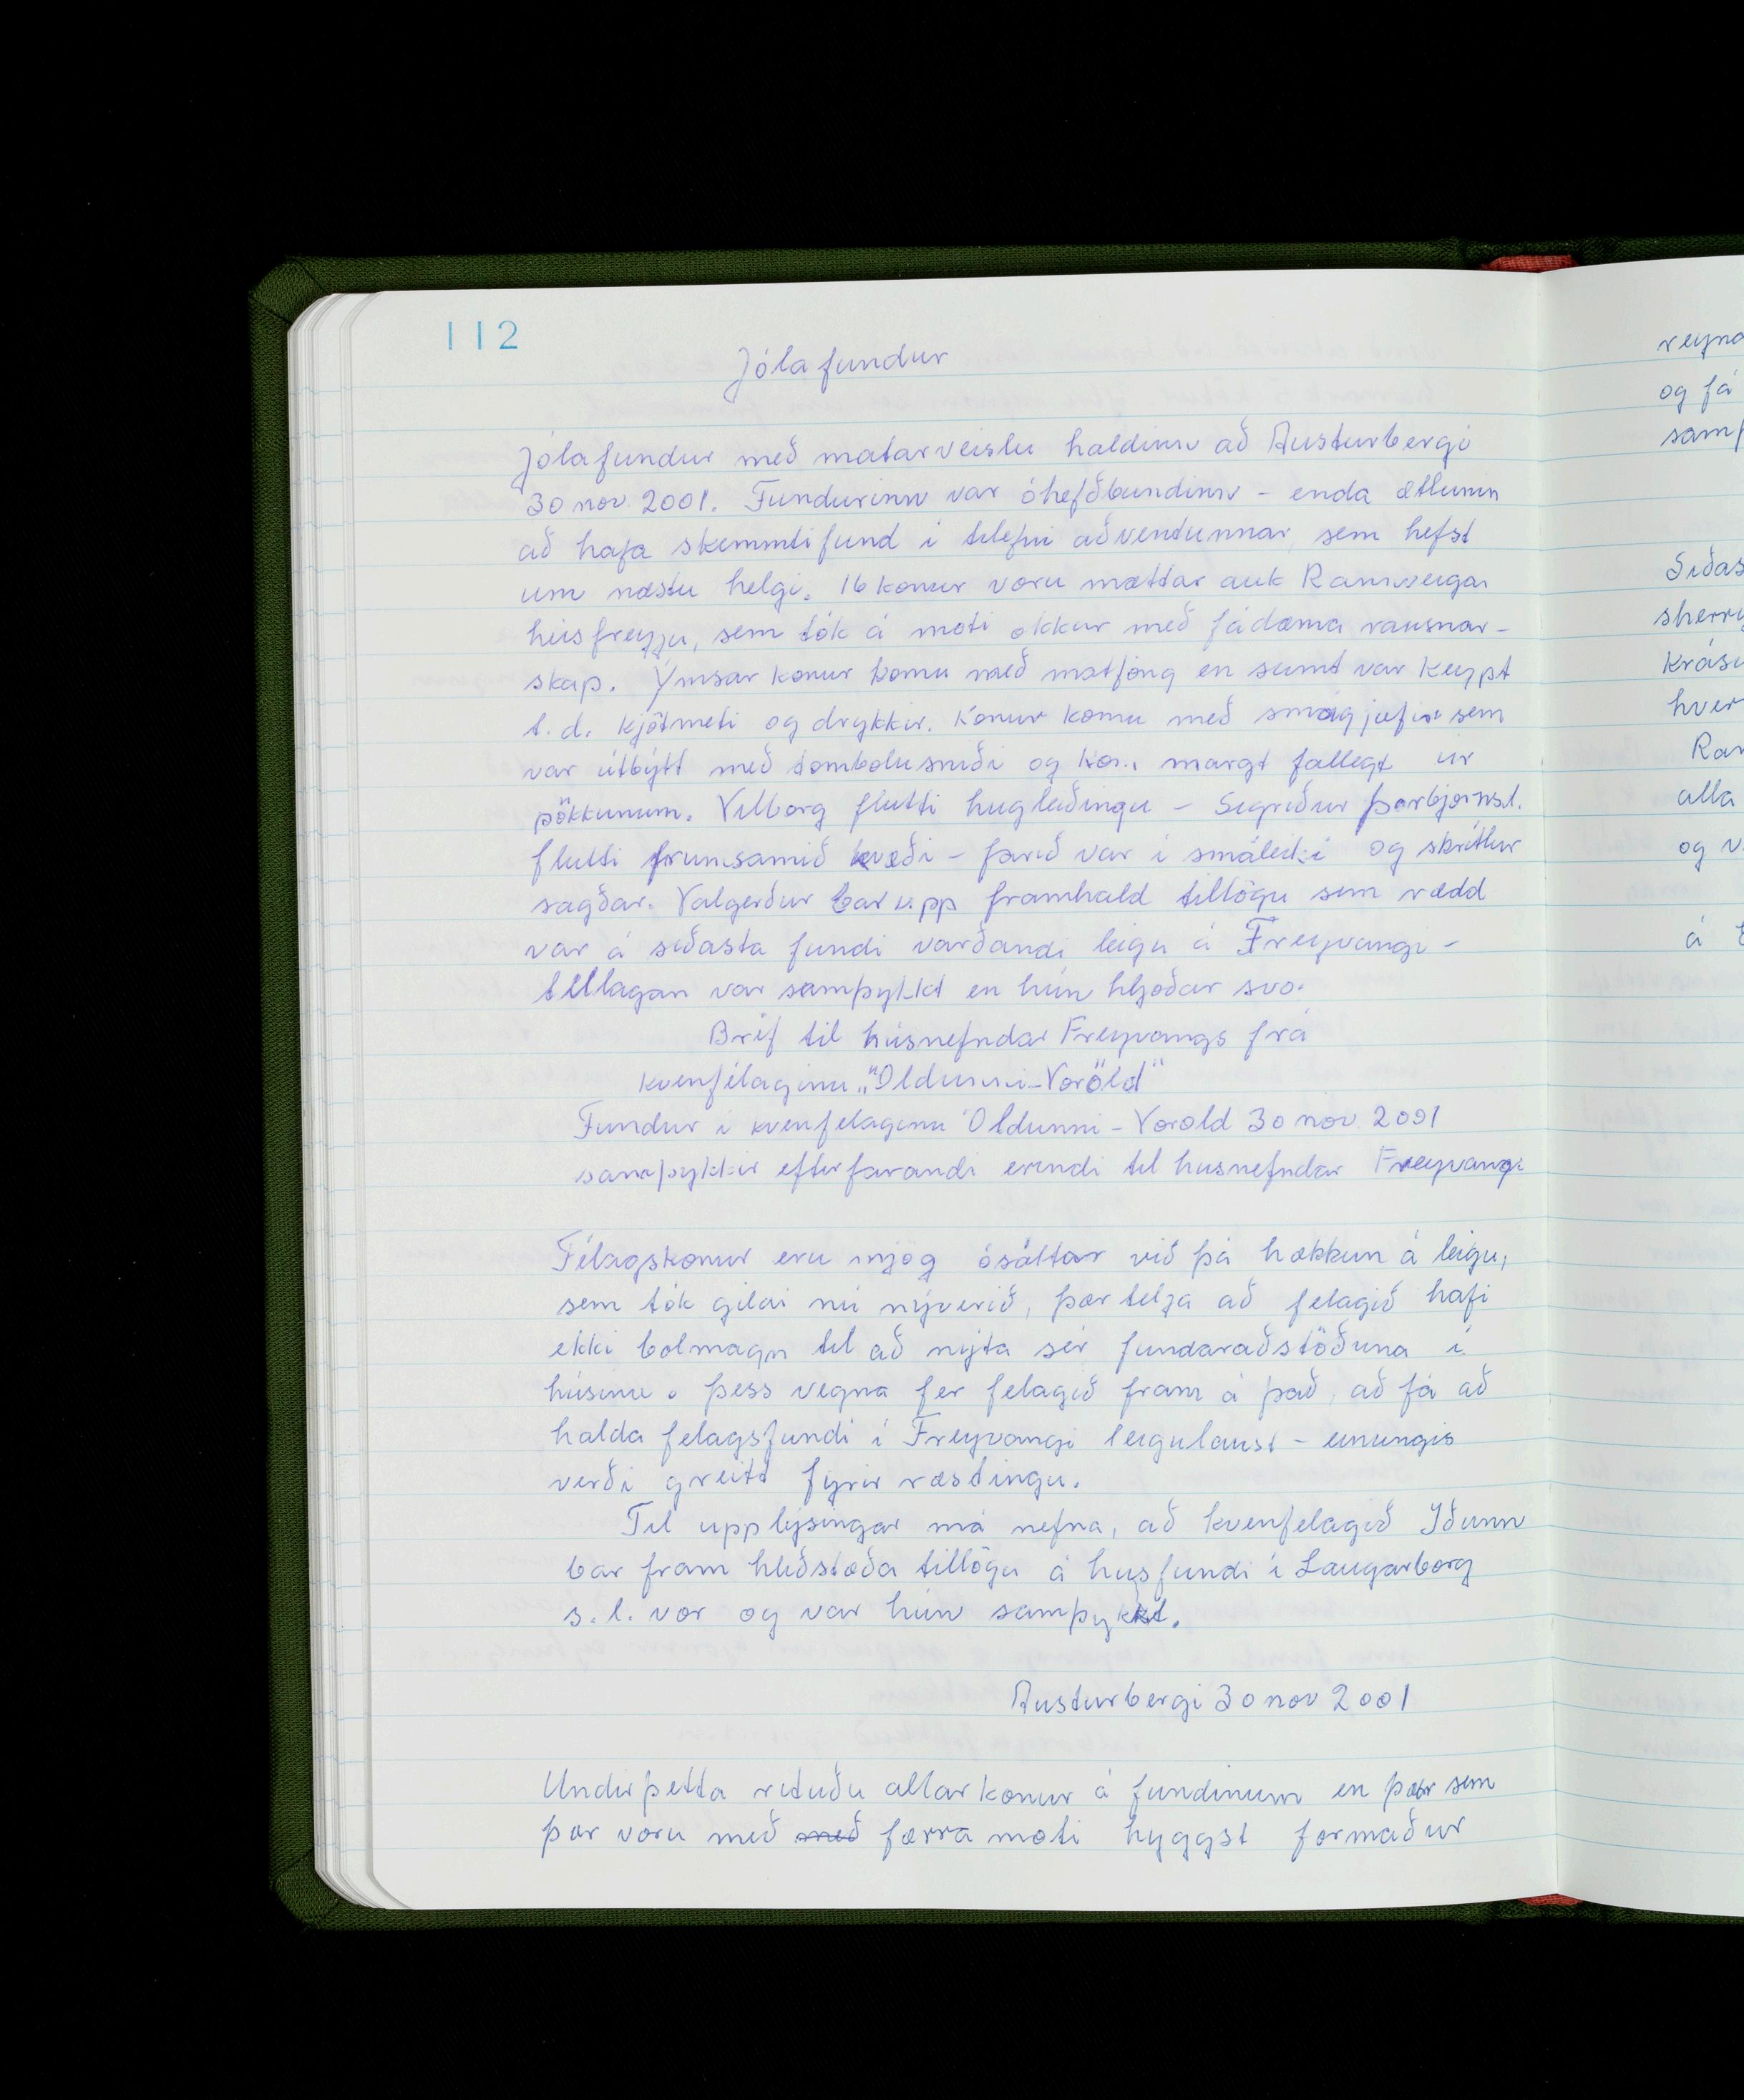 112
Jólafundur
Jólafundur með matarveislu haldinn að Austurbergi
30 nov 2001. Fundurinn var óhefðbundinn - enda ætlunin
að hafa skemmtifund í tilefni aðventunnar, sem hefst
um næstu helgi. 16 konur voru mættar auk Rannveigar
húsfreyju, sem tók á moti okkur með fádæma rausnar-
skap. Ýmsar konur komu með matföng en sumt var keypt
t.d. kjötmeti og drykkir. Konur komu með smágjafir sem
var útbýtt með tombolusniði og kom margt fallegt úr
pökkunum. Vilborg flutti hugleðingu - Sigriður Þorbjörnsd.
flutti frumsamið kvæði - farið var i smáleiki og skrítlur
sagðar. Valgerður bar upp framhald tillögu sem rædd
var á siðasta fundi varðandi leigu á Freyvangi -
tillagan var samþykkt en hún hljoðar svo.
Bréf til húsnefndar Freyvangs frá
kvenfélaginu „Öldunni-Voröld"
Fundur i kvenfelaginu Öldunni - Vorold 30 nov 2001
samþykkir eftirfarandi erindi til husnefndar Freyvangi
Félagskonur eru mjög ósáttar við þá hækkun á leigu,
sem tók gildi nú nýverið, þær telja að felagið hafi
ekki bolmagn til að nýta sér fundaraðstöðuna í
húsinu. Þess vegna fer felagið fram á það, að fá að
halda felagsfundi í Freyvangi leigulaust - einungis
verði greitt fyrir ræstingu.
Til upplýsingar má nefna, að kvenfelagið Iðunn
bar fram hliðstæða tillögu á husfundi i Laugarborg
s.l. vor og var hún samþykkt.
Austurbergi 30 nov 2001
Undir þetta rituðu allar konur á fundinum en þar sem
þær voru með með færra moti hyggst formaður
og fá
sherry
hver
alla